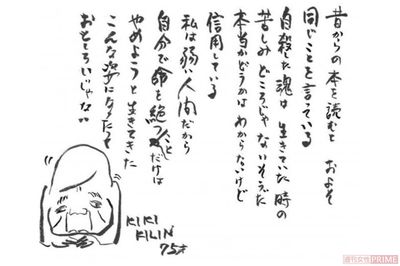 昔からの本を読むと およそ
同じことを言っている
自殺した魂は 生きていた時の
苦しみどころじゃ ないそうだ
本当かどうかは わからないけど
信用している
私は弱い人間だから
自分で命を絶つことだけは
やめようと 生きてきた
こんな姿になったって
おもしろいじゃない
KIKI
KILIN
75才
週刊女性PRIME